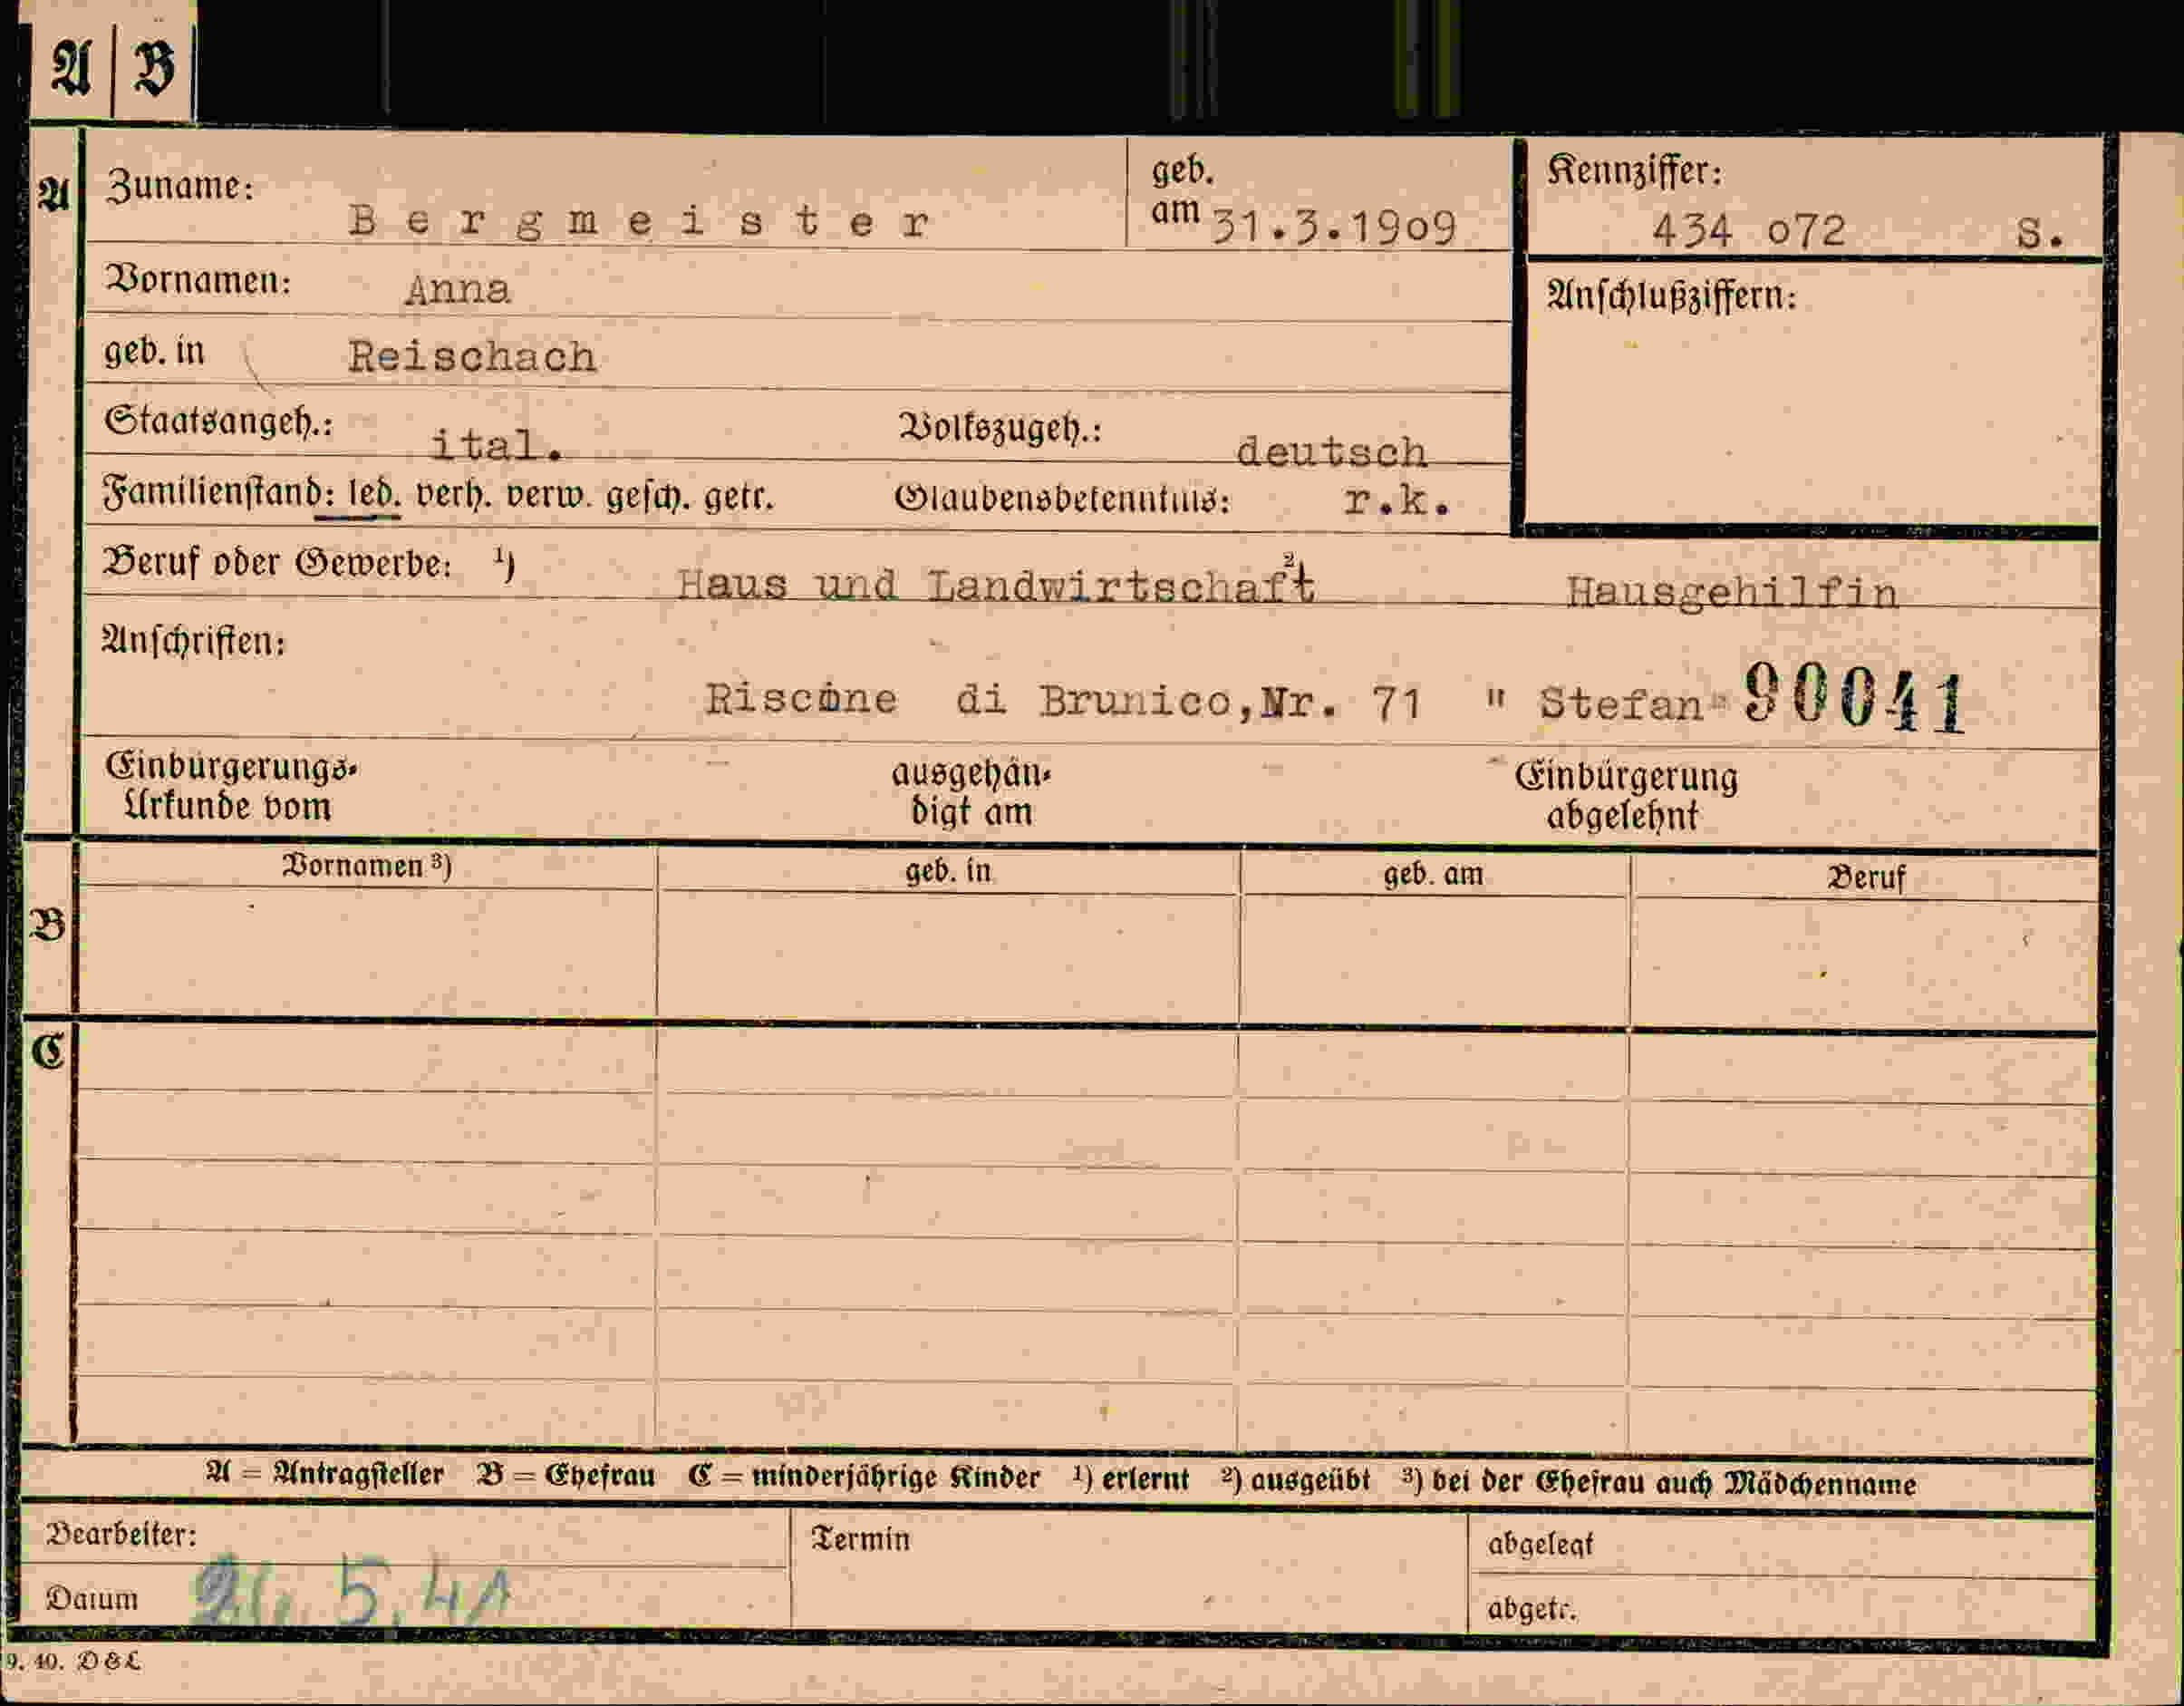 A B
A Zuname: Bergmeister geb. am 31.3.1909 Kennziffer: 434 o72 S.
Vornamen: Anna Anschlußziffern:
geb. in Reischach
Staatsangeh.: ital. Volkszugeh.: deutsch
Familienstand: led. verh. verw. gesch. getr. Glaubensbekenntnis: r.k.
Beruf oder Gewerbe: ¹) Haus und Landwirtschaft ²) Hausgehilfin
Anschriften:
Riscone di Brunico,Nr. 71 " Stefan" 90041
Einbürgerungs-Urkunde vom ausgehän-digt am Einbürgerung abgelehnt
Vornamen ³) geb. in geb. am Beruf
B
C
A = Antragsteller B = Ehefrau C = minderjährige Kinder ¹) erlernt ²) ausgeübt ³) bei der Ehefrau auch Mädchenname
Bearbeiter: Termin abgelegt
Datum 5.41 abgetr.
9. 40. D&L